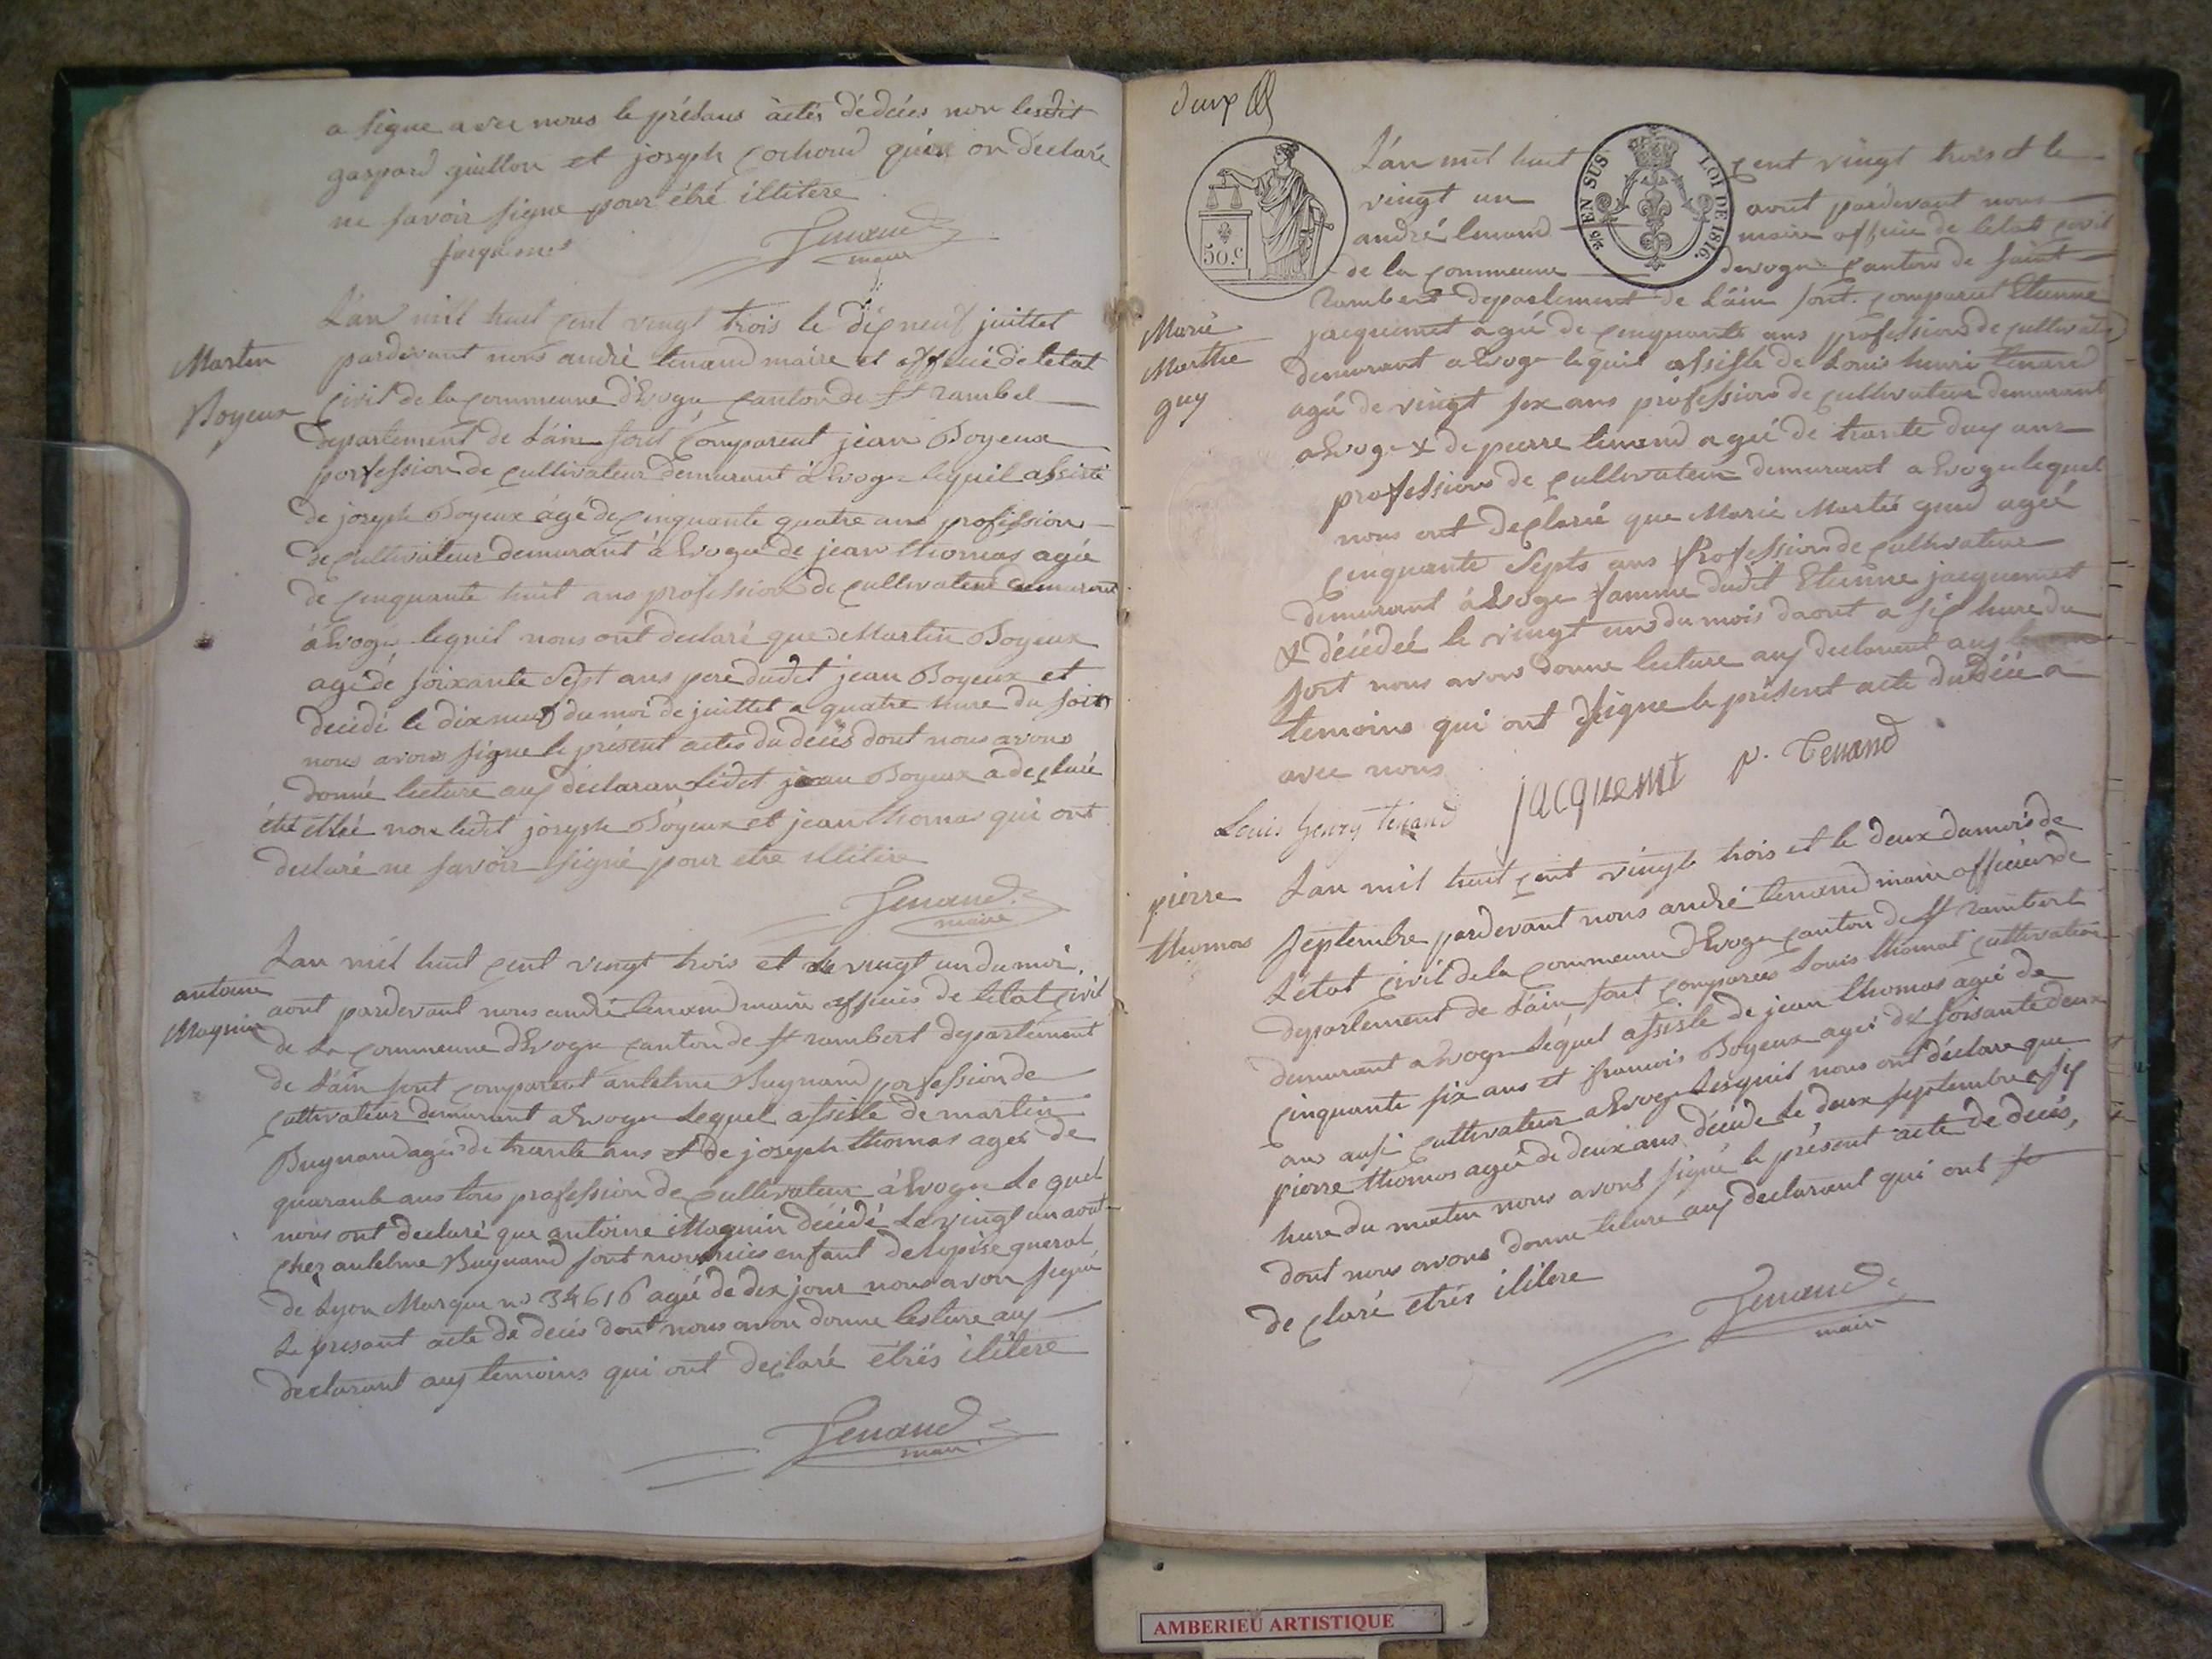 a signe avec nous le présans actes dédcées non lesdit
gaspard guillon et joseph cochoud quin on déclaré
ne savoir signe pour étré illitere
jacquemet
Tenand
maire
L'an mil huit cent vingt trois le dix neuf juillet
Martin
pardevant nous andré tenand maire et officié de letat
Boyeux
civil de la commeune dEvoge canton de St rambel
département de Lain sont comparent jean Boyeux
porfession de cultivateur demeurant à Evoge lequil assisté
de joseph Boyeux âgé de cinquante quatre ans profission
de cultivateur demurant à Evoge de jean thomas agée
de cenquante huit ans profession de cultivateur demurant
à Evoge lequil nous ont declaré que Martin Boyeux
agé de soixante Sept ans pere dudit jean Boyeux et
décidé le dix neuf du moi de juillet a quatre hure du soir
nous avons signe le présent actes du décès dont nous avons
donné lecture aux déclaran ledit jean Boyeux a declaré
été non ledit joseph Boyeux et jean thomas qui ont
declaré ne savoir signé pour etre illitire
Tenand
maire
Lan mil huit cent vingt trois et le vingt un du moi
antoine
aout pardevant nous andré tenand maire officiés de létat civil
Magnin
de La commeune dEvoge canton de St rambert departement
de Lain sont comparent antelme Buynand porfession de
cultivateur demurant a Evoge Lequel assisle de martin
Buynand agés de trante ans et de joseph thomas agés de
quarante ans tous profession de cultivateur à Evoge Lequel
nous ont declaré que antoine Magnin décidé Le vingt un aout
chez antelme Buynand sont nourricés enfant de lopise gueral
de Lyon Marque no 34616 agé de dix jour nous avon signé
Le presant acte de decés dont nous avon donne lesture aux
declarant aux temoins qui ont déclaré étrés ilitere
Tenand
maire
deux
L'an mil huit cent vingt trois et le
vingt un aout pardevant nous
andré tenand maire officié de létat civil
de la commeune devoge canton de saint
5/10 EN SUS LOI DE 1816.
50.c
rambert departement de Lain sont comparent Etienne
Marie
Marthe
guy
jacquemet agée de cinquante ans profession de cultivateu
demurant a Evoge lequil assisste de Louis henri tenand
agé de vingt six ans profession de cultivateur demurant
a Evoge & de pierre tenand agée de trante dux ans
profession de cultivateur demurant a Evoge lequel
nous ont declarié que Marie Marthe agée
cinquante Septs ans profession de cultivateur
demurant à Evoge famme dudit Etienne jacquemet
& décédeé le vingt un du mois daout a six hure du
soir nous avons donne lecture aux declarent aux
temoins qui ont signe le présent acte du décé a
avec nous
Louis henry tenand jacquemt p. Tenand
pierre
Lan mil huit cent vingte trois et le deux du mois de
thomas
septembre pardevant nous andré tenand maire officier de
Létat civil de la commeune dEvoge canton de St rambert
departement de Lain sont comparees Louis thomas cultivateur
demurant a Evoge Léquel assisle de jean thomas agée de
cinquante six ans et francois Boyeux agés de soisante deux
ans ausi cultivateur a Evoge Lesquil nous ont déclare que
pierre thomas agée de deux ans décide Le deux septembre a six
hure du matin nous avons signé le présent acte de decés,
dont nous avons donne leture aux declarant qui ont
declaré etrés ilitere
Tenand
maire
AMBERIEU ARTISTIQUE